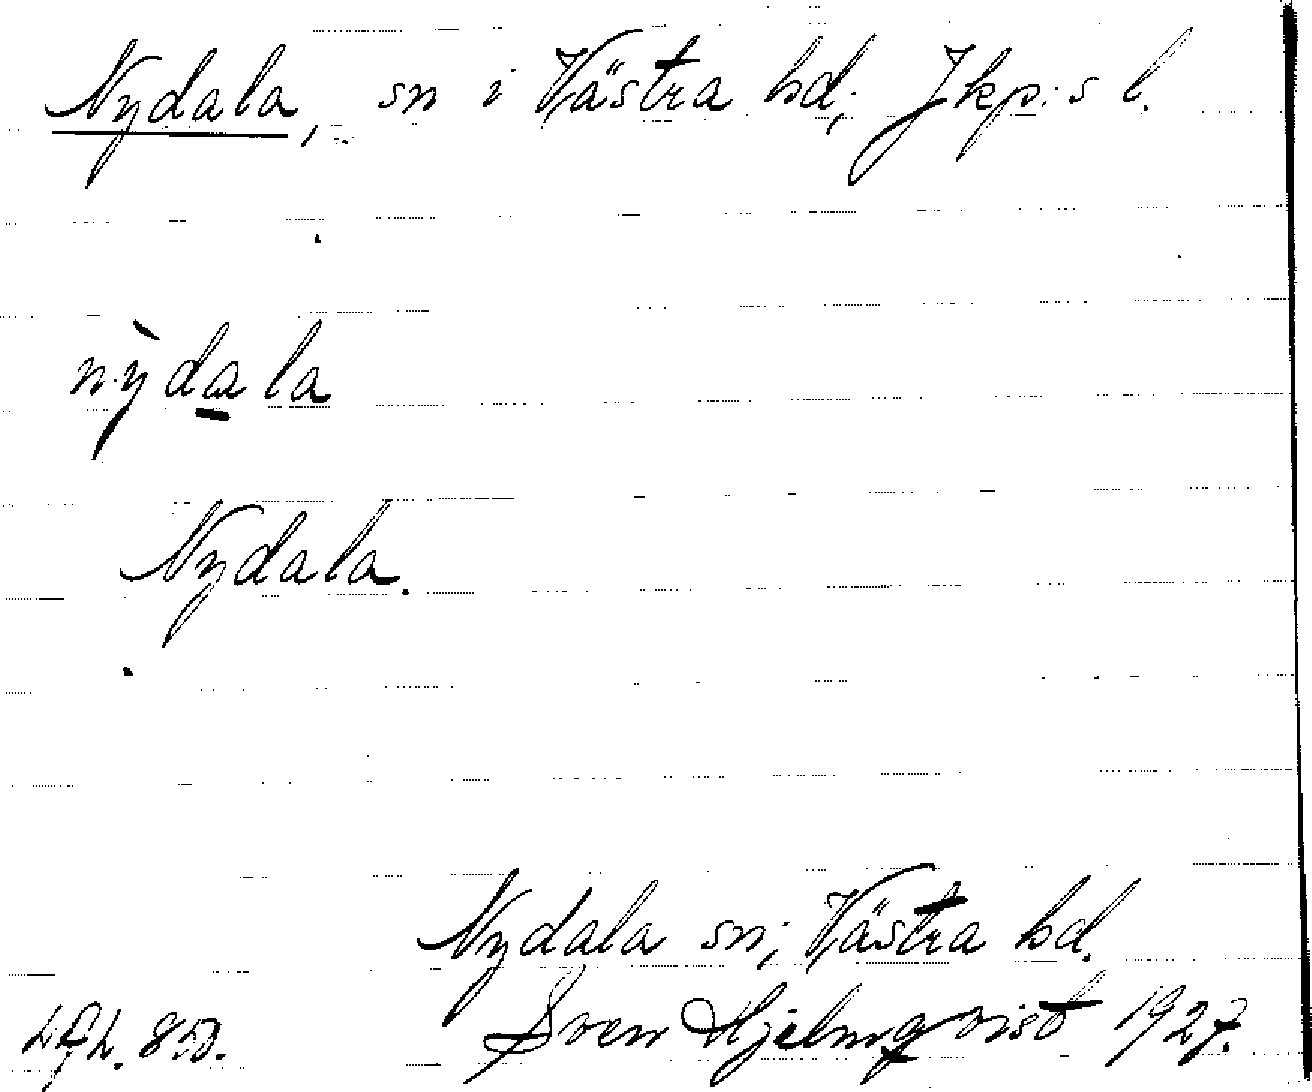 Nydala, sn i Västra hd; Jkp:s l.
nỳdala
Nydala.
Nydala sn; Västra hd.
Sven Hjelmqvist 1927.
850.